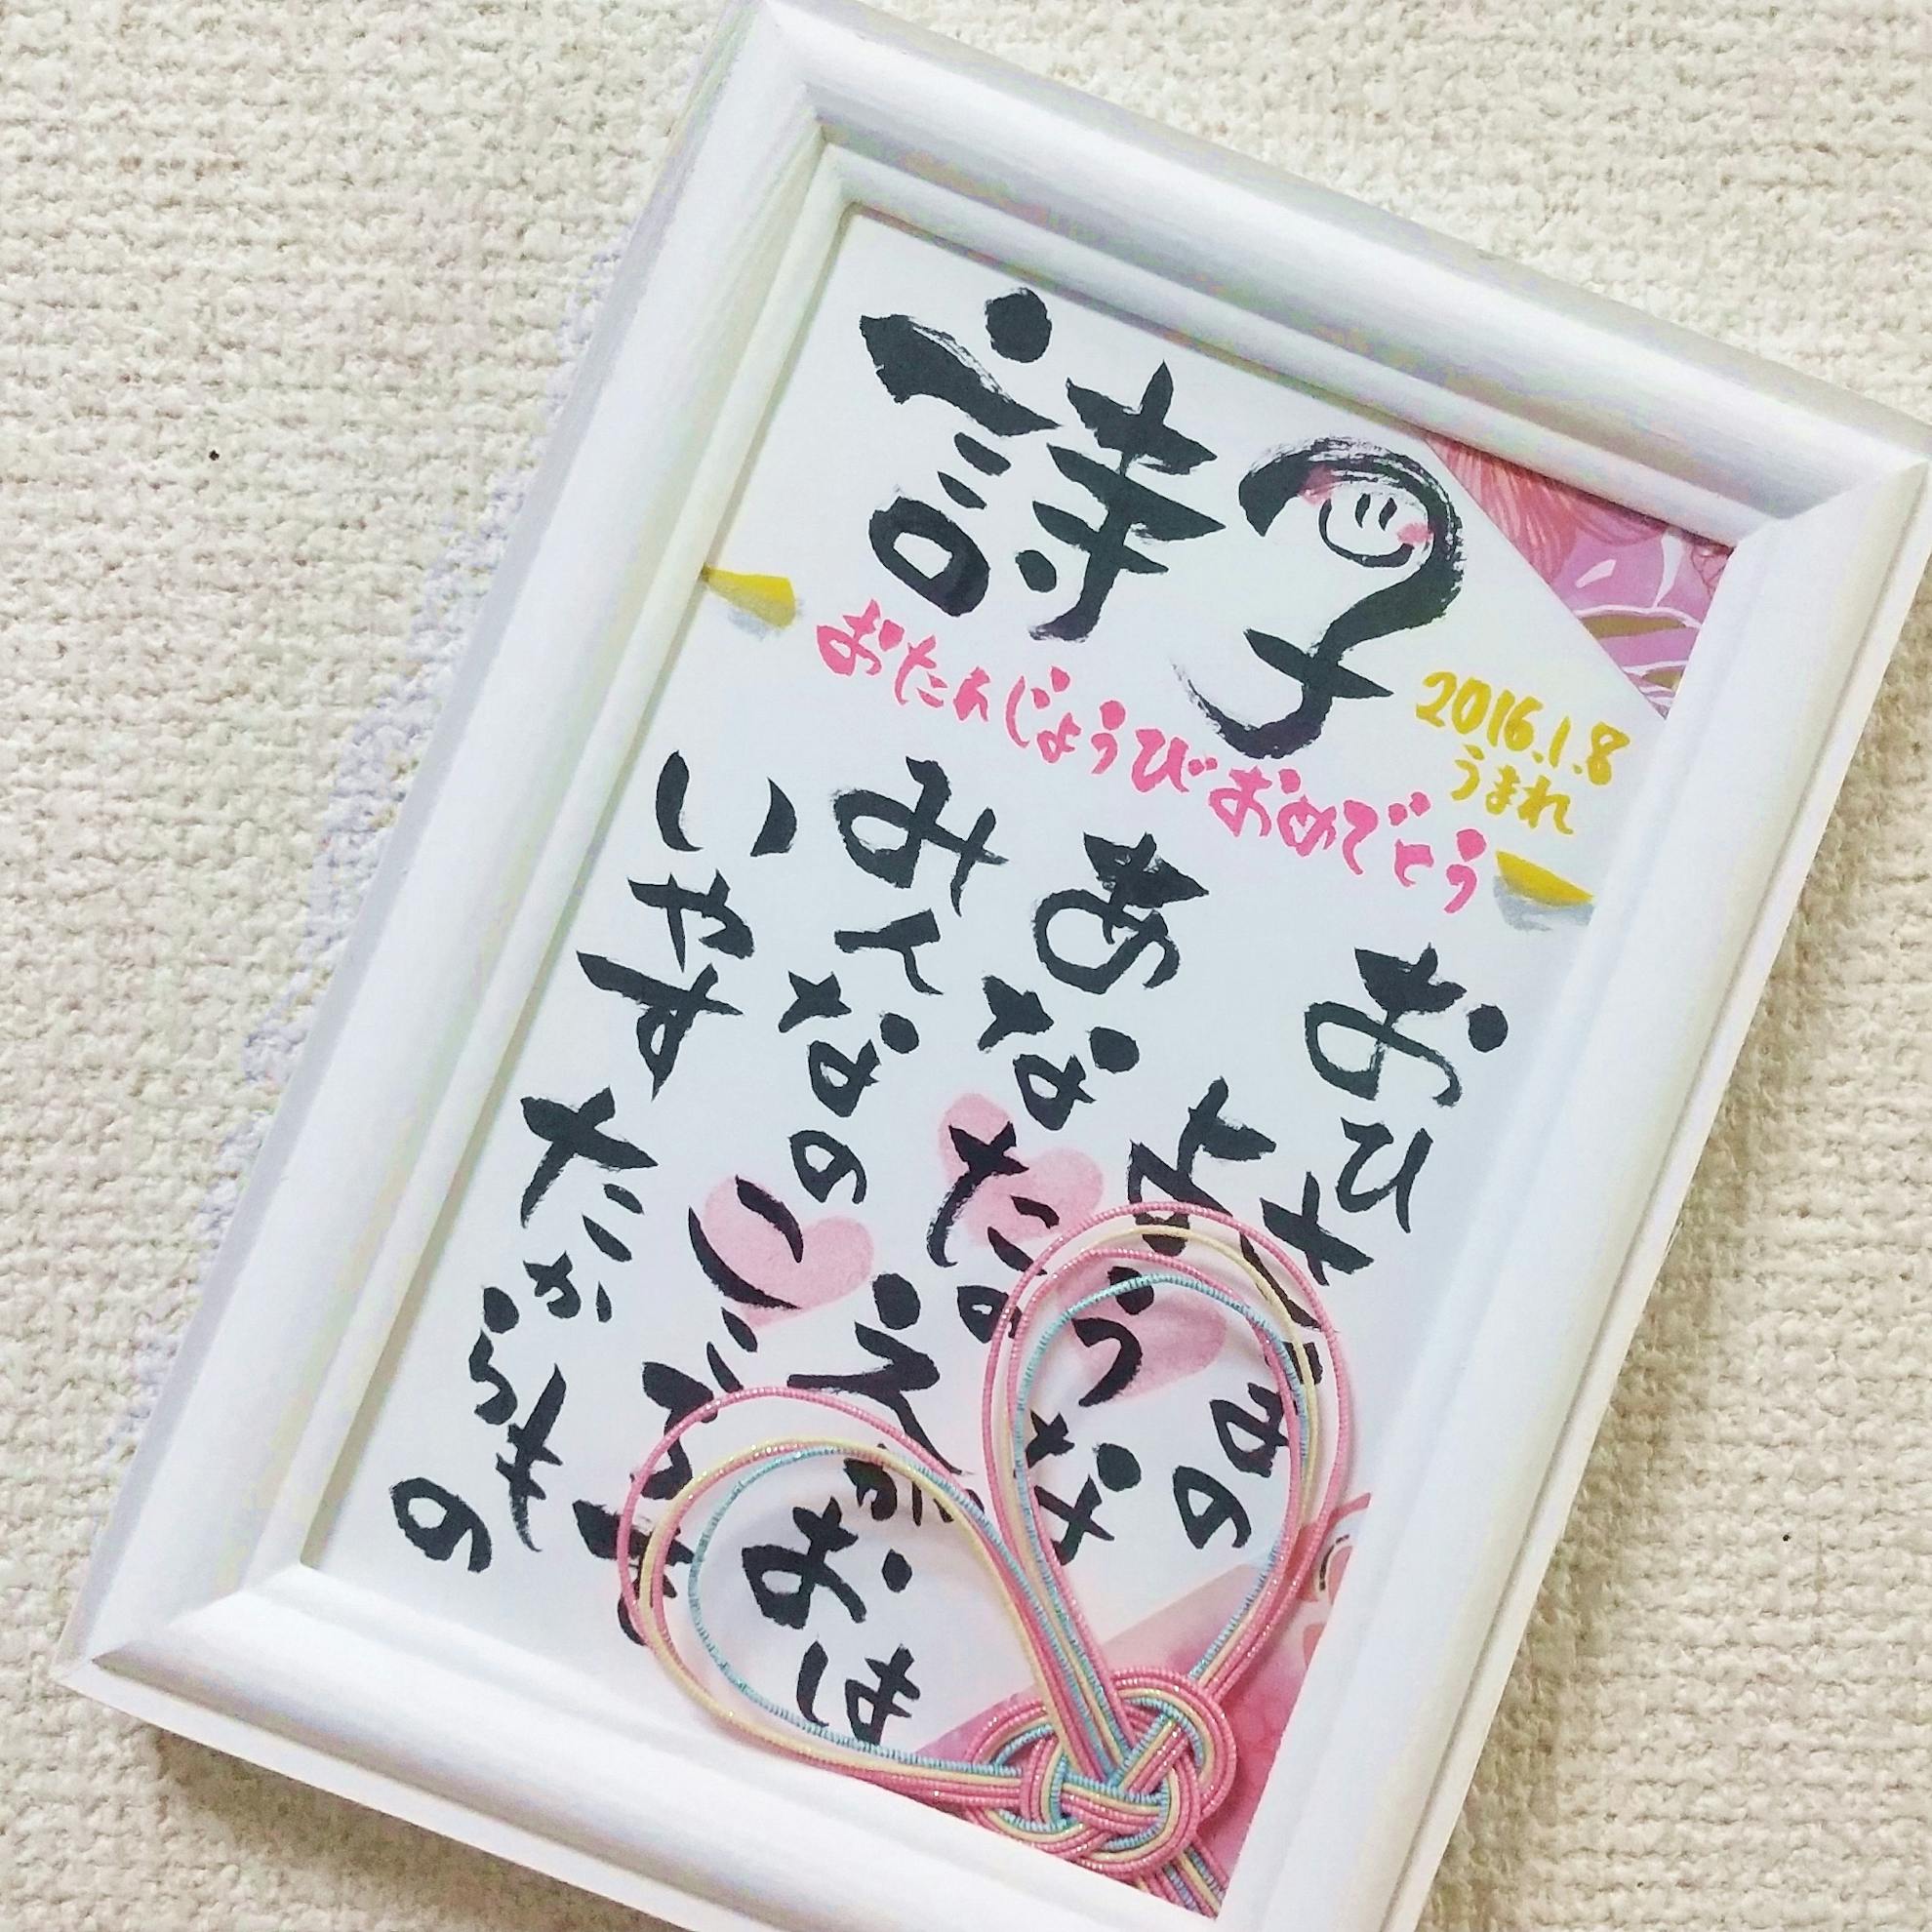 詩子
2016.1.8
うまれ
おたんじょうびおめでとう
おひさまの
ような
あなたの
えがおは
みんなの
こころを
いやす
たからもの